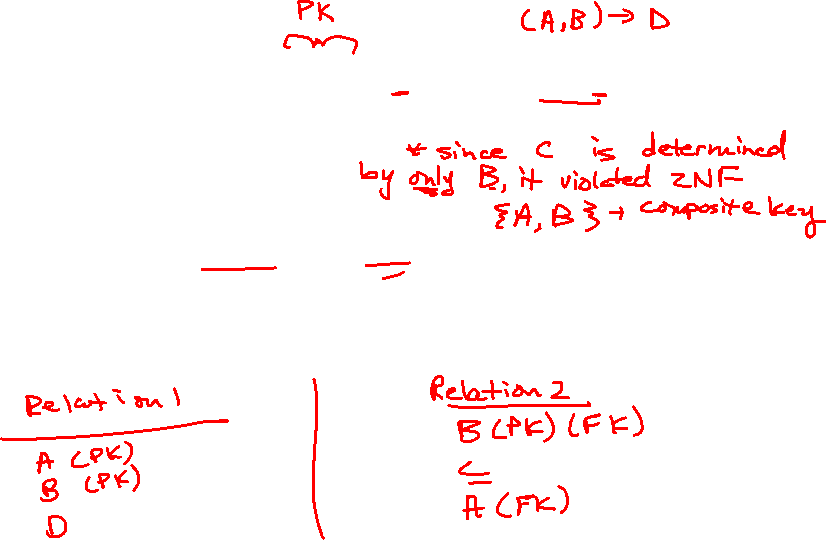 PK
(A,B) → D
* since C is determined
by only B, it violated 2NF
{A, B} → composite key
Relation 1
A (PK)
B (PK)
D
Relation 2
B (PK) (FK)
C
A (FK)